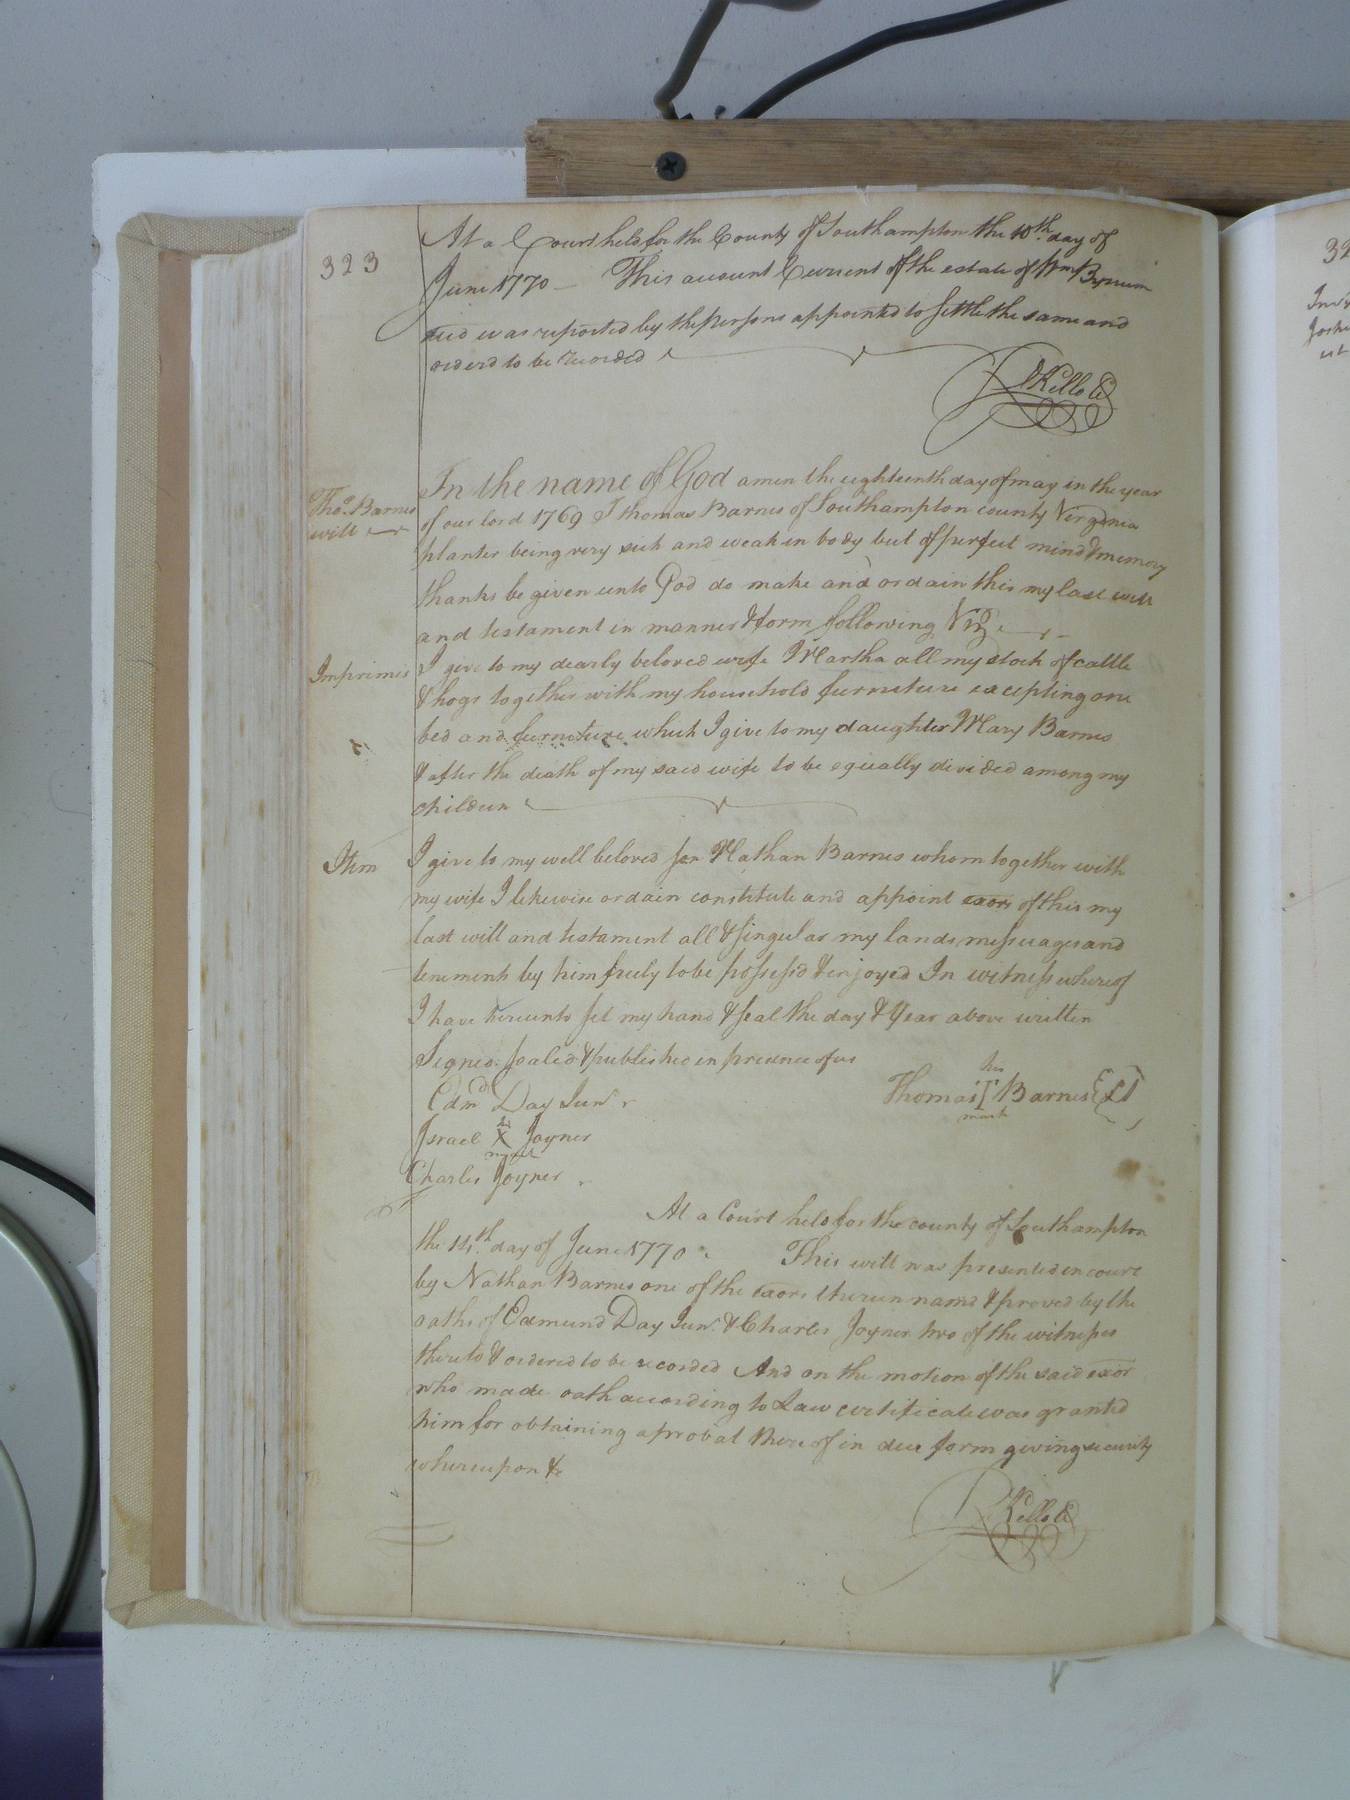 323
At a Court held for the County of Southampton the 10th day of
June 1770 — This account Current of the estate of Wm Bynum
decd was reported by the persons appointed to settle the same and
orderd to be recorded
RKello Cl
Thos. Barnes
will
In the name of God amen the eighteenth day of may in the year
of our lord 1769 I thomas Barnes of Southampton county Virginia
planter being very sick and weak in body but of perfect mind & memory
thanks be given unto God do make and ordain this my last will
and testament in manner & form following Viz
Imprimis I give to my dearly beloved wife Martha all my stock of cattle
& hogs together with my household furneture excepting one
bed and furneture which I give to my daughter Mary Barnes
& after the death of my said wife to be equally divided among my
children
Item I give to my well beloved son Nathan Barnes whom together with
my wife I likewise ordain constitute and appoint exors of this my
last will and testament all & singular my lands messuages and
tenements by him freely to be possessd & enjoyed In witness whereof
I have hereunto set my hand & seal the day & year above written
Signed sealed & published in presence of us
his
Thomas I Barnes LS
mark
Edmd Day Junr
Israel X Joyner
mark
Charles Joyner
At a Court held for the county of Southampton
the 14th day of June 1770. This will was presented in court
by Nathan Barnes one of the exors therein named & proved by the
oaths of Edmund Day Junr & Charles Joyner two of the witnesses
thereto & ordered to be recorded And on the motion of the said exor
who made oath according to Law certificate was granted
him for obtaining a probat thereof in due form giving security
whereupon &c
RKello Cl
32